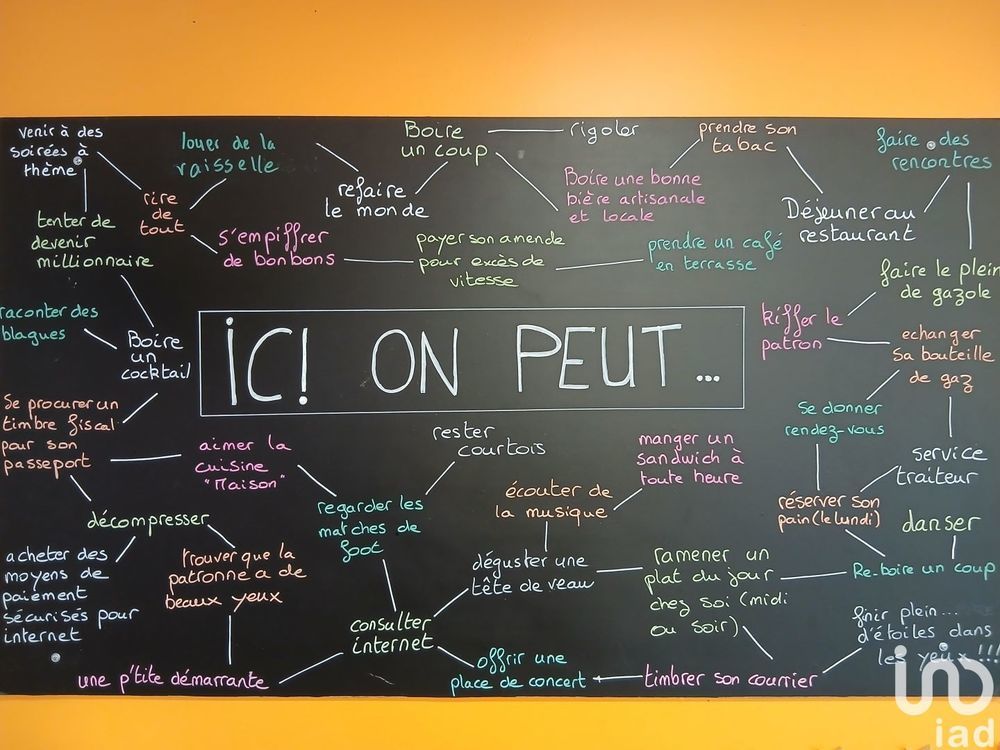 venir à des
soirées à
thème
louer de la
vaisselle
Boire
un coup
rigoler
prendre son
tabac
faire des
rencontres
rire
de
tout
refaire
le monde
Boire une bonne
bière artisanale
et locale
Déjeuner au
restaurant
tenter de
devenir
millionnaire
s'empiffrer
de bonbons
payer son amende
pour excès de
vitesse
prendre un café
en terrasse
faire le plein
de gazole
raconter des
blagues
Boire
un
cocktail
ici on peut...
kiffer le
patron
echanger
sa bouteille
de gaz
Se procurer un
timbre fiscal
pour son
passeport
aimer la
cuisine
"Maison"
rester
courtois
manger un
sandwich à
toute heure
Se donner
rendez-vous
service
traiteur
décompresser
regarder les
matches de
foot
écouter de
la musique
réserver son
pain (le lundi)
danser
acheter des
moyens de
paiement
sécurisés pour
internet
trouver que la
patronne a de
beaux yeux
déguster une
tête de veau
ramener un
plat du jour
chez soi (midi
ou soir)
Re-boire un coup
consulter
internet
finir plein...
d'étoiles dans
les yeux !!!
une p'tite démarrante
offrir une
place de concert
timbrer son courrier
iad